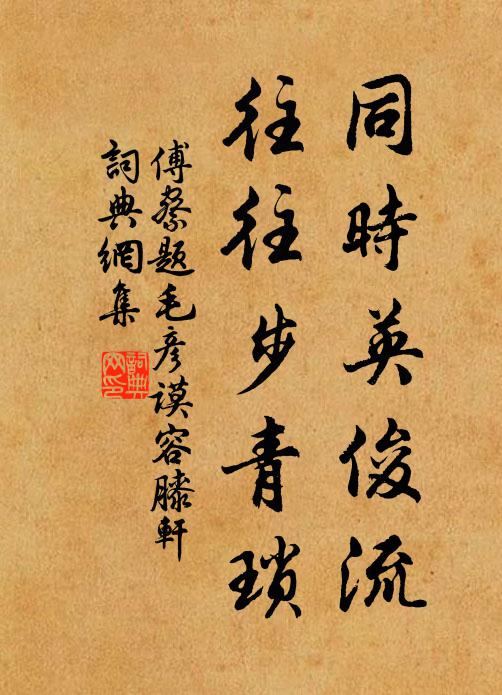 同時英俊流
往往步青瑣
傅察題毛彥謨容膝軒
詞典網集
詞典
网印